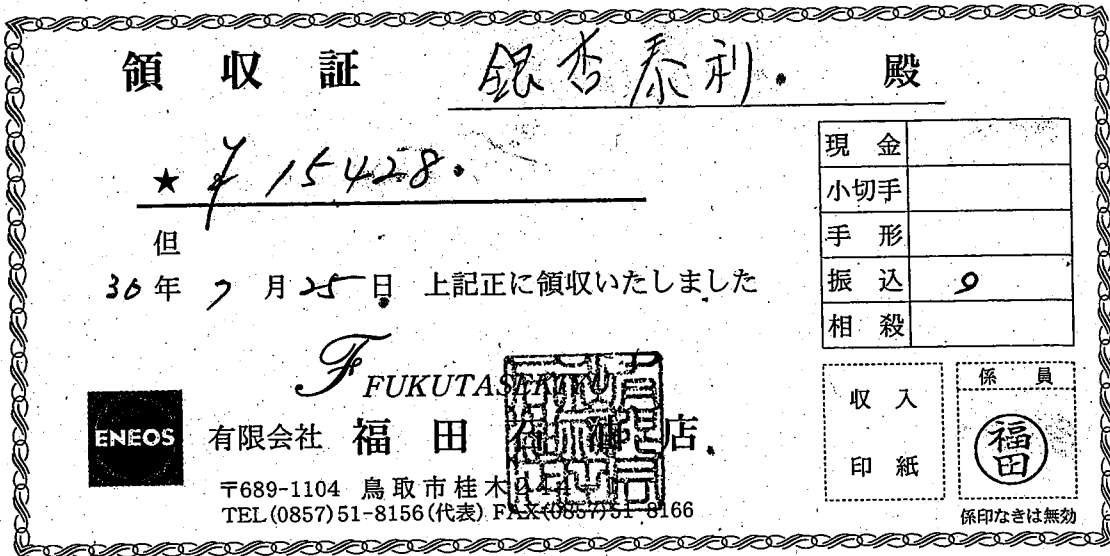 領収証 銀杏泰利. 殿
★ ¥15428.
但
30年7月25日 上記正に領収いたしました
現金
小切手
手形
振込 〇
相殺
FUKUTASEKIYU
ENEOS 有限会社 福田石油店
〒689-1104 鳥取市桂木
TEL(0857)51-8156(代表) FAX(0857)51-8166
収入
印紙
係員
福田
係印なきは無効